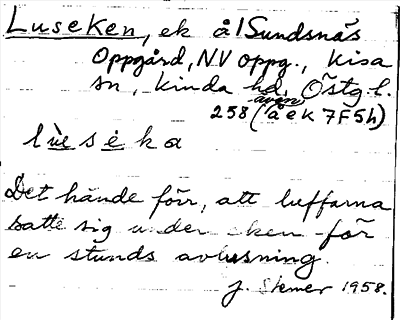 Luseken, ek å/Sundsnäs
Oppgård, NV oppg., Kisa
sn, Kinda hd, Östg.l.
även
258 (å ek 7F5h)
lùesèka
Det hände förr, att luffarna
satte sig under eken för
en stunds avlusning.
J. 1958.